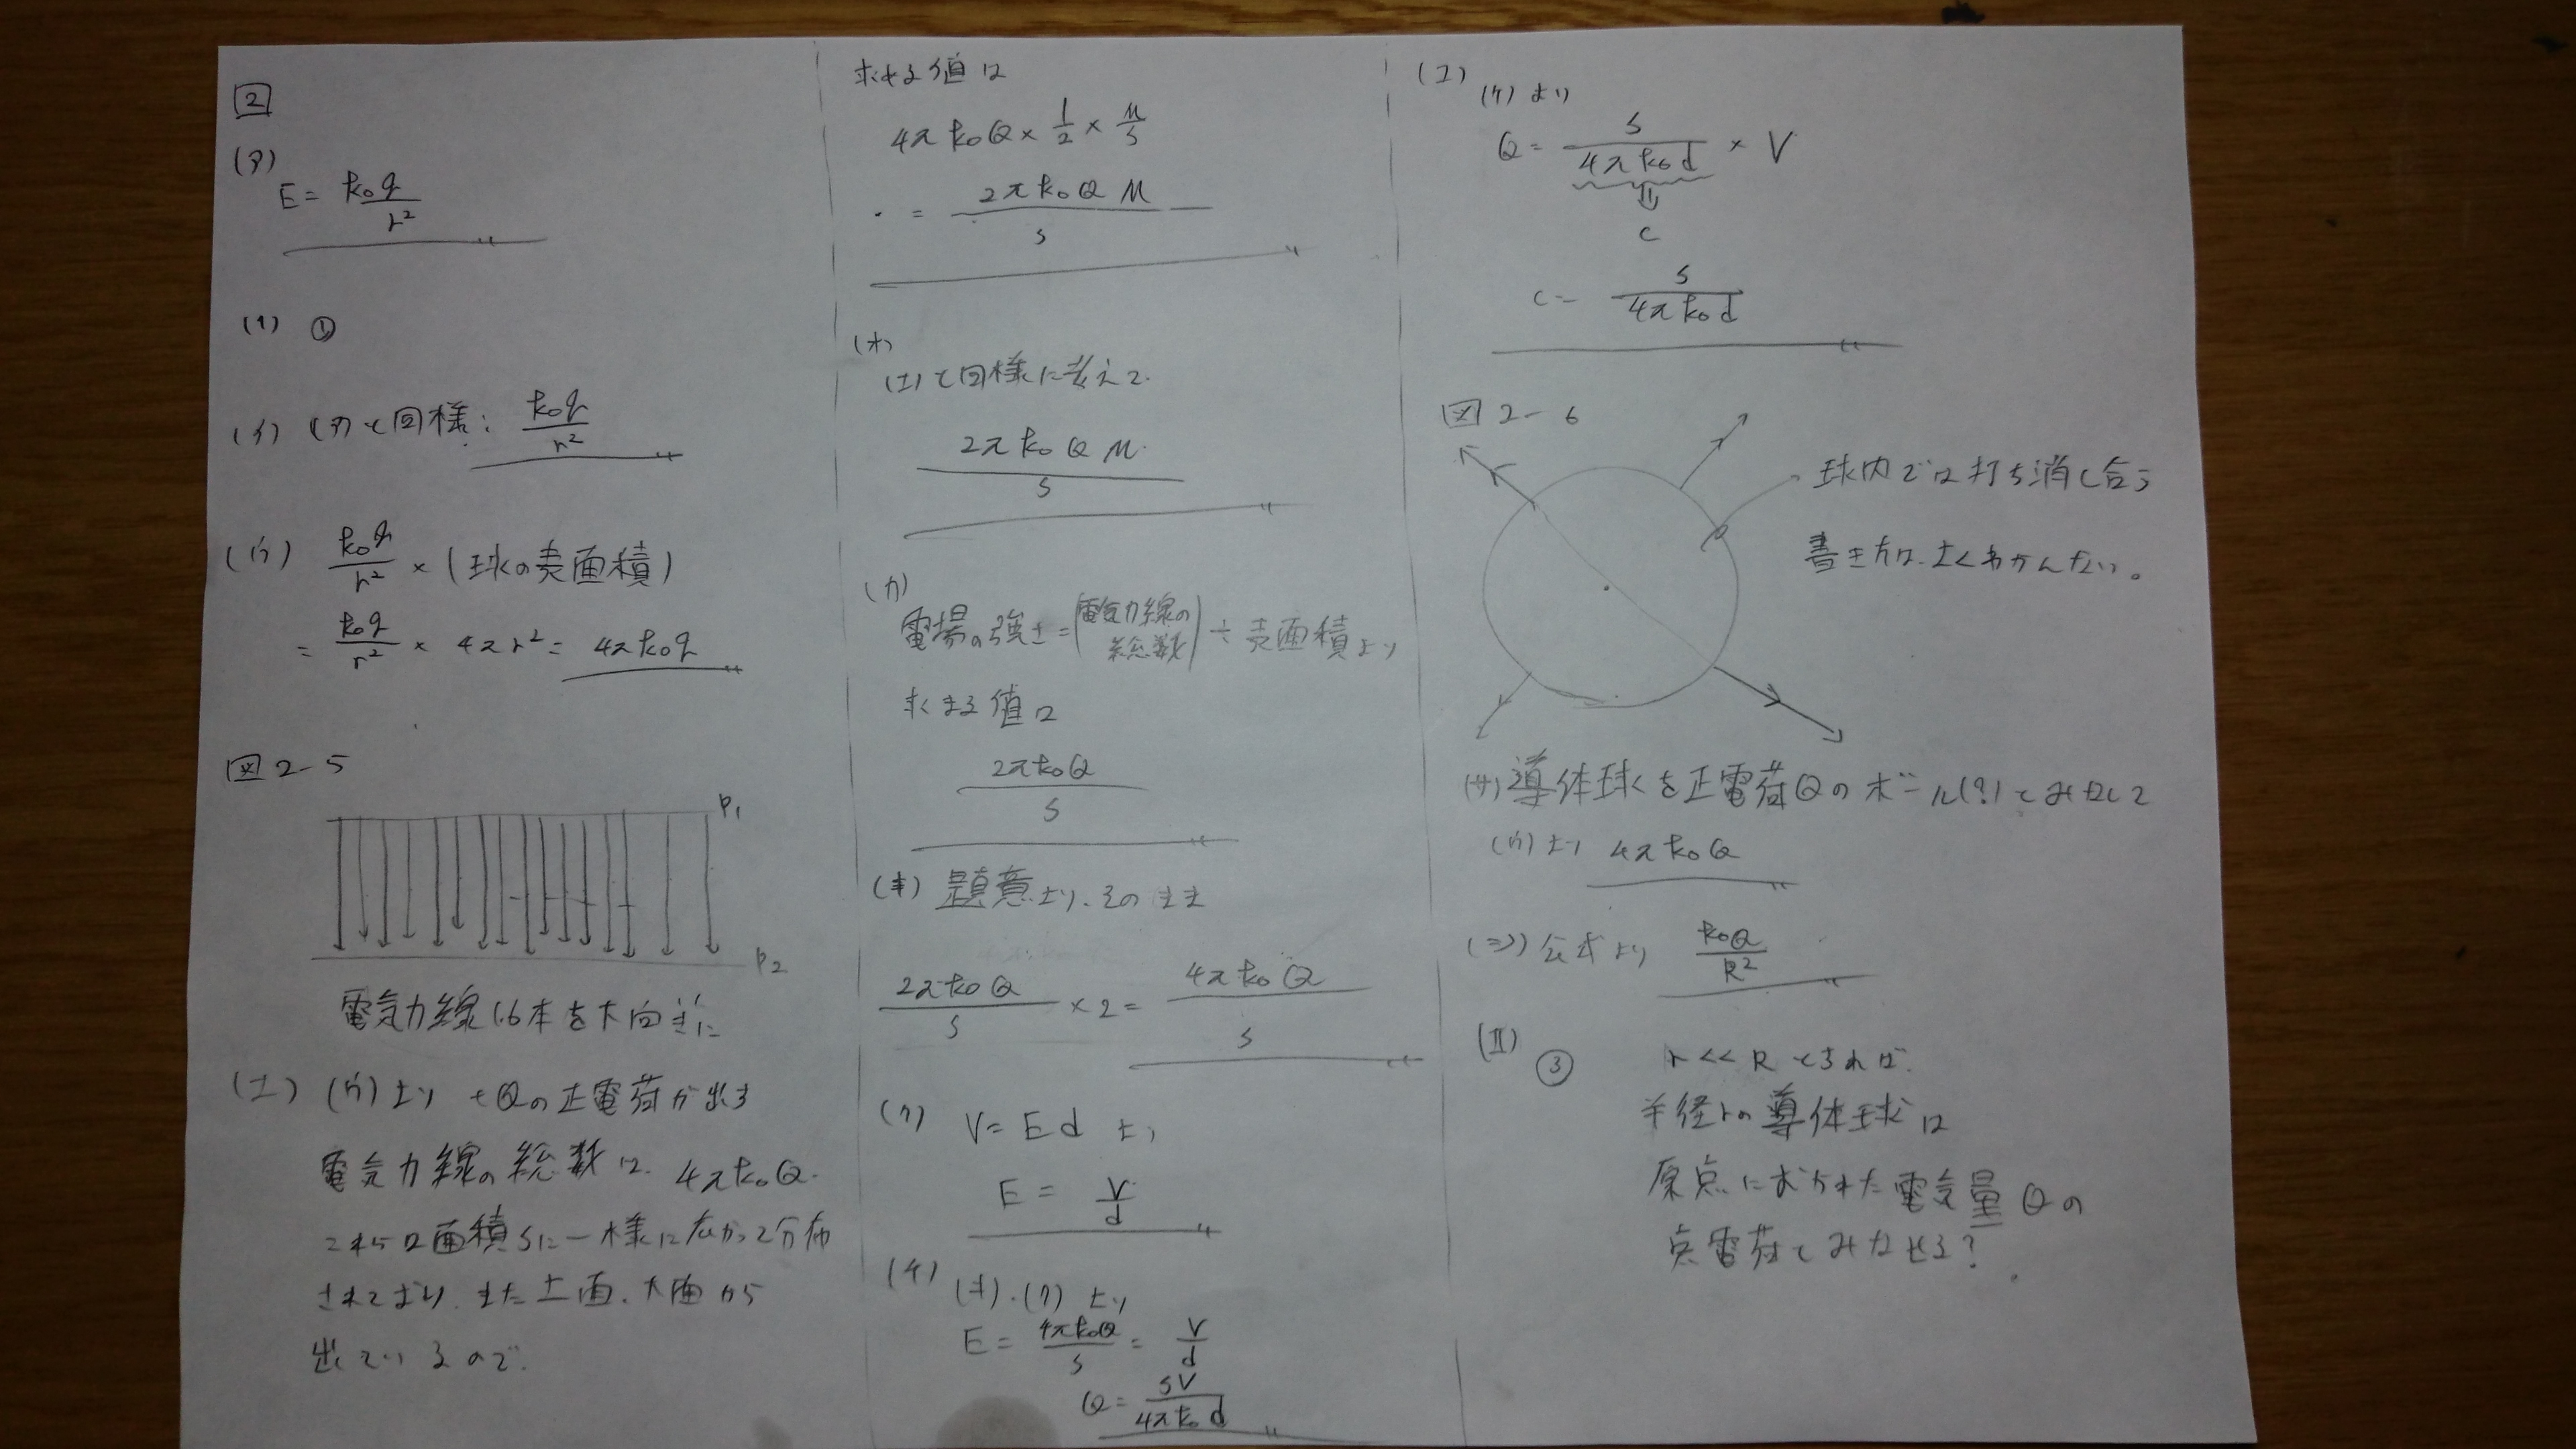 2
(ア)
E = k₀q/r²
(I) ①
(イ) (ア)と同様: k₀q/r²
(ウ) k₀q/r² × (球の表面積)
= k₀q/r² × 4πr² = 4πk₀q
図2-5
P₁
P₂
電気力線16本を下向きに
(エ) (ウ)より +Qの正電荷が出る
電気力線の総数は 4πk₀Q.
これらは面積Sに一様に広がって分布
されており、また上面、下面から
出ているので.
求める値は
4πk₀Q × 1/2 × M/S
= 2πk₀QM/S
(オ)
(エ)と同様に考えて.
2πk₀QM/S
(カ)
電場の強さ = (電気力線の総数) ÷ 表面積より
求まる値は
2πk₀Q/S
(キ) 題意より、そのまま
2πk₀Q/S × 2 = 4πk₀Q/S
(ク) V = Ed より
E = V/d
(ケ)
(キ).(ク)より
E = 4πk₀Q/S = V/d
Q = SV/4πk₀d
(コ)
(ケ)より
Q = S/4πk₀d × V
C
C = S/4πk₀d
図2-6
球内では打ち消し合う
書き方は、よくわかんない。
(サ) 導体球を正電荷Qのボール(?)とみなして
(ウ)より 4πk₀Q
(シ) 公式より k₀Q/R²
(II) ③ r << R とすれば.
半径rの導体球は
原点におかれた電気量Qの
点電荷とみなせる?